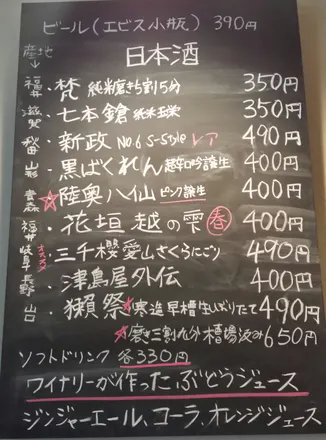 ビール(エビス小瓶) 390円
産地 日本酒
福井・梵 純米磨き三割五分 350円
滋賀・七本鎗 純米玉栄 350円
秋田・新政 No.6 S-Style レア 490円
山形・黒ばくれん 超辛口吟醸生 400円
青森☆陸奥八仙 ピンク醸生 400円
福井・花垣 越の雫 春 400円
岐阜 オススメ・三千櫻 愛山さくらにごり 490円
長野・津島屋外伝 400円
山口・獺祭☆寒造早槽生しぼりたて 490円
☆磨き三割九分 槽場汲み 650円
ソフトドリンク 各330円
ワイナリーが作ったぶどうジュース
ジンジャーエール、コーラ、オレンジジュース